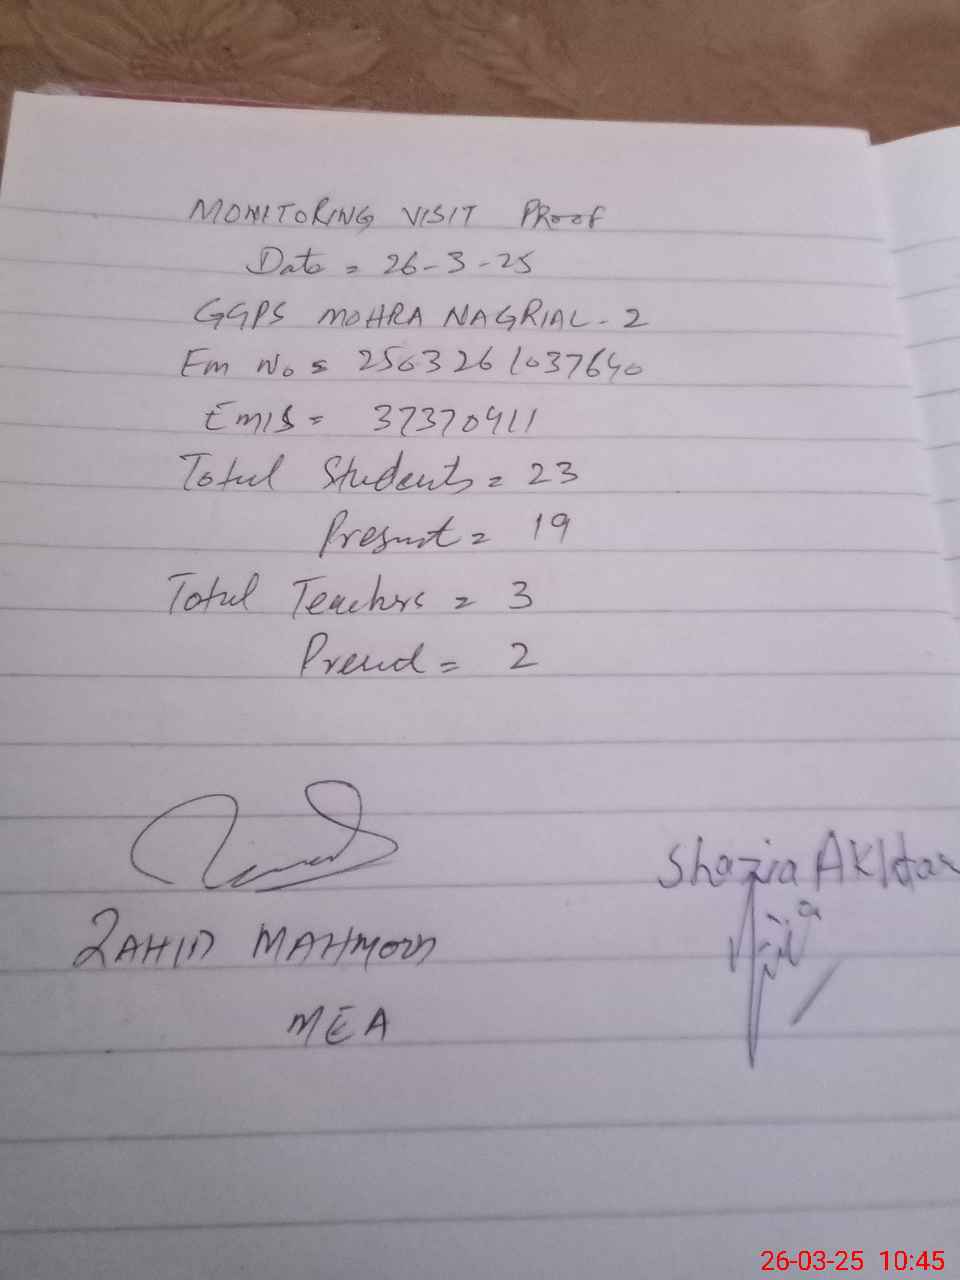 MONITORING VISIT PROOF
Date = 26-3-25
GGPS MOHRA NAGRIAL-2
Em No = 2563261037640
EMIS = 37370411
Total Students = 23
Present = 19
Total Teachers = 3
Present = 2
ZAHID MAHMOOD
MEA
Shazia Akhtar
26-03-25 10:45